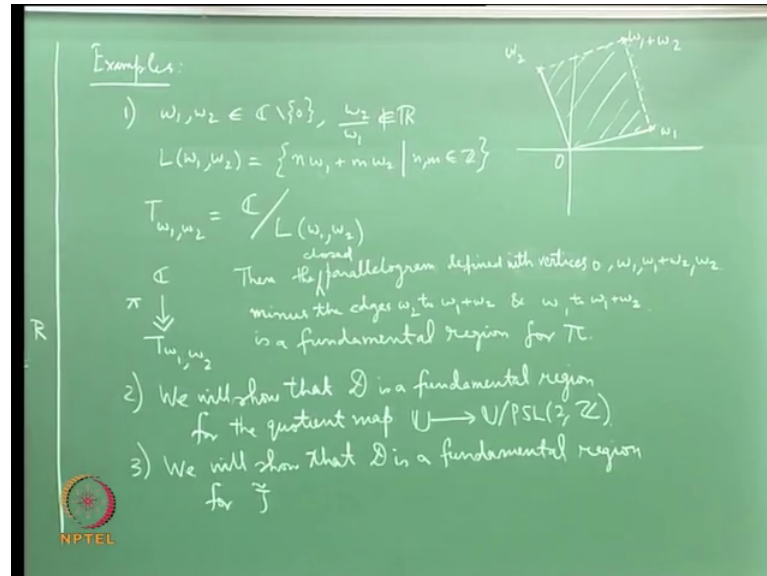 Examples:
1) ω₁, ω₂ ∈ ℂ \ {0}, ω₂/ω₁ ∉ ℝ
L(ω₁, ω₂) = {nω₁ + mω₂ | n, m ∈ ℤ}
T_{ω₁, ω₂} = ℂ / L(ω₁, ω₂)
ℂ Then the closed parallelogram defined with vertices 0, ω₁, ω₁+ω₂, ω₂
π ↓ minus the edges ω₂ to ω₁+ω₂ & ω₁ to ω₁+ω₂
T_{ω₁, ω₂} is a fundamental region for π.
2) We will show that D is a fundamental region
for the quotient map U → U/PSL(2, ℤ)
3) We will show that D is a fundamental region
for
ω₂
ω₁+ω₂
ω₁
0
R
NPTEL